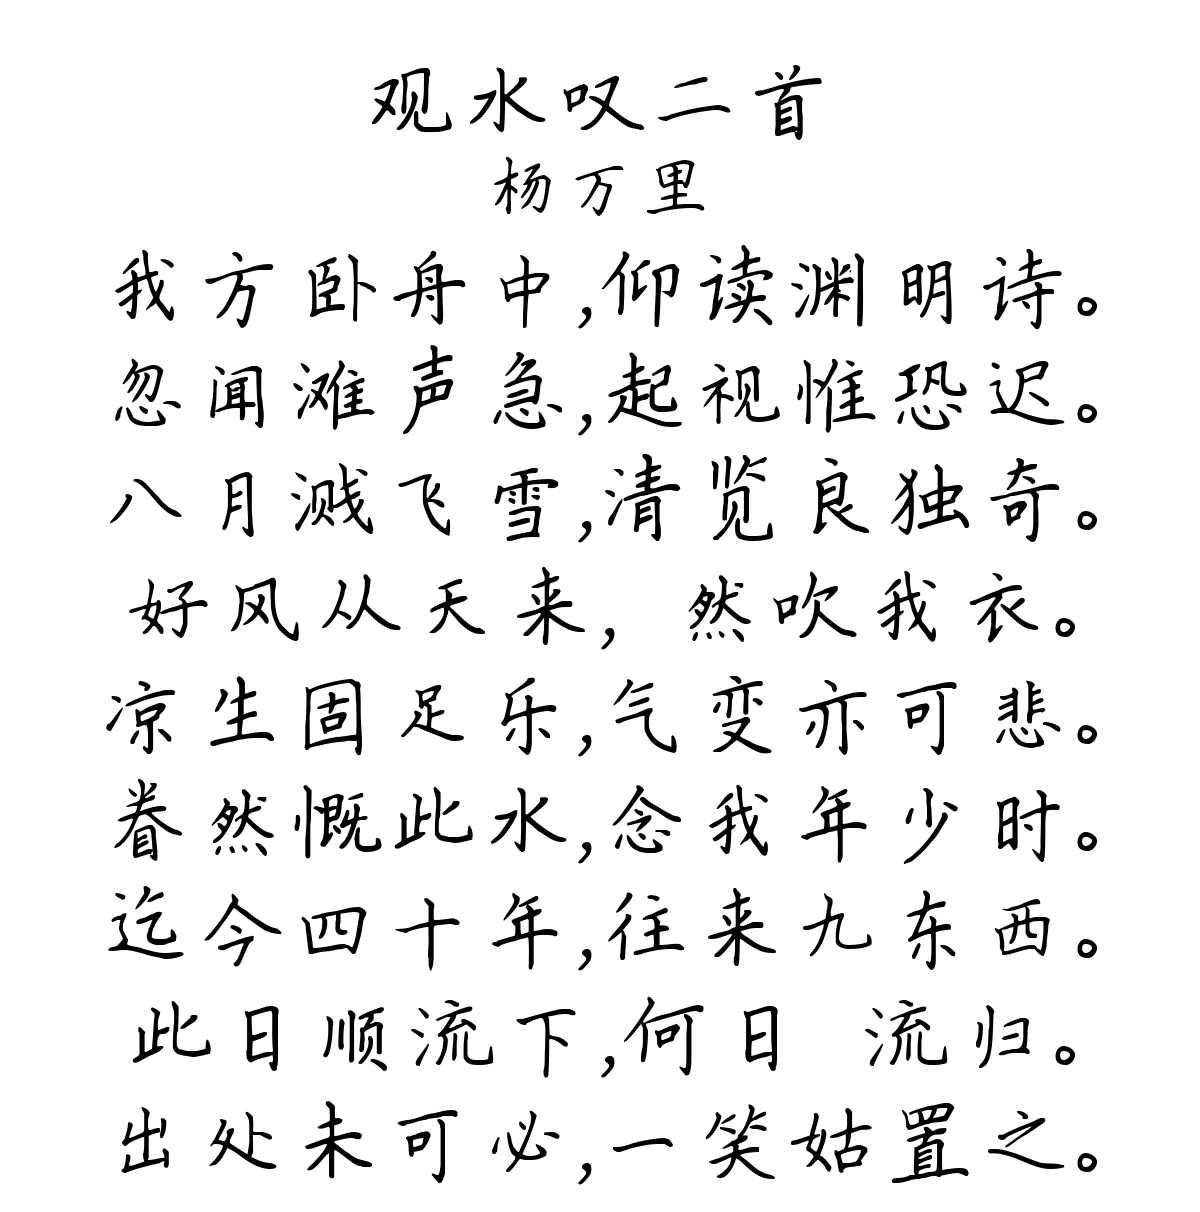 观水叹二首
杨万里
我方卧舟中,仰读渊明诗。
忽闻滩声急,起视惟恐迟。
八月溅飞雪,清览良独奇。
好风从天来, 然吹我衣。
凉生固足乐,气变亦可悲。
眷然慨此水,念我年少时。
迄今四十年,往来九东西。
此日顺流下,何日 流归。
出处未可必,一笑姑置之。